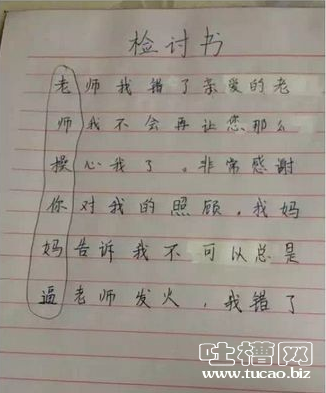 检讨书
老师我错了亲爱的老
师我不会再让您那么
操心我了。非常感谢
你对我的照顾。我妈
妈告诉我不可以总是
逼老师发火，我错了
吐槽网
www.tucao.biz